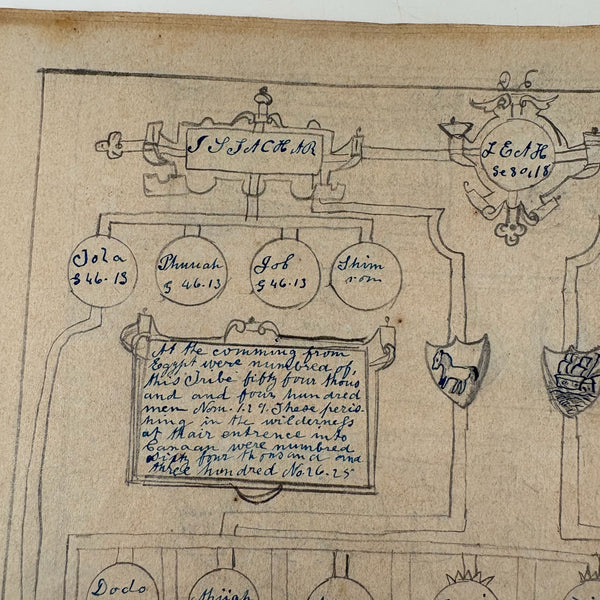 26
ISSACHAR
LEAH
Ge 30.18
Jola
G 46.13
Phuuah
G 46.13
Job
G 46.13
Shim
rom
At the comming from
Egypt were numbred of,
this Tribe fifty four thous
and and four hundred
men Nom. 1.29. These peris-
hing in the wilderness
at thair entrence into
Canaan were numbred
sixty four thousand and
three hundred No. 26.25
Dodo